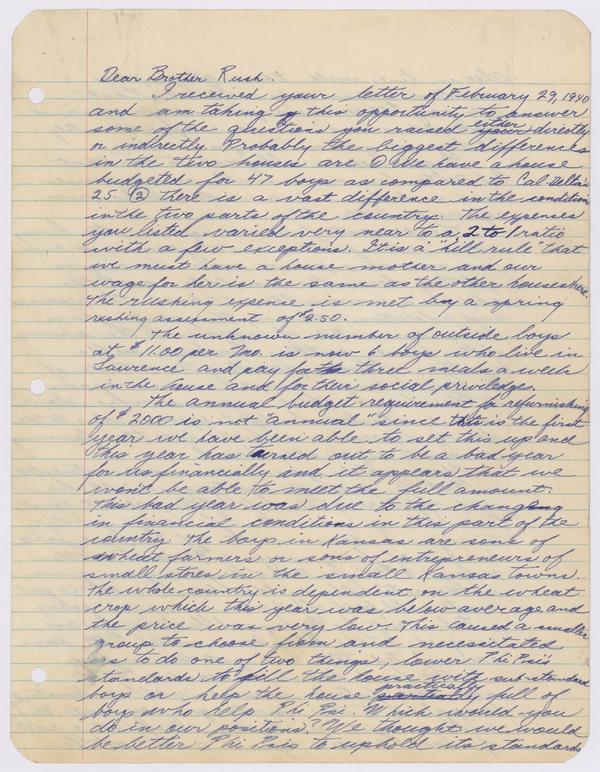 Dear Brother Rush:
I received your letter of February 29, 1940
and am taking this opportunity to answer
some of the questions you raised either directly
or indirectly. Probably the biggest differences
in the two houses are ① We have a house
budgeted for 47 boys as compared to Cal. Delta's
25. ② There is a vast difference in the condition
in the two parts of the country. The expenses
you listed varied very near to a 2 to 1 ratio
with a few exceptions. It is a "hill rule" that
we must have a house mother and our
wage for her is the same as the other houses here.
The rushing expense is met by a spring
rushing assessment of $2.50.
The unknown number of outside boys
at $11.00 per mo. is now 6 boys who live in
Lawrence and pay for three meals a week
in the house and for their social priviledges.
The annual budget requirement for refurnishing
of $2000 is not "annual" since this is the first
year we have been able to set this up and
this year has turned out to be a bad year
for us financially and it appears that we
wont be able to meet the full amount.
This bad year was due to the changing
in financial conditions in this part of the
country. The boys in Kansas are sons of
wheat farmers or sons of entrepreneurs of
small stores in the small Kansas towns.
The whole country is dependent on the wheat
crop which this year was below average and
the price was very low. This caused a smaller
group to choose from and necessitated
us to do one of two things, lower Phi Psi's
standards to fill the house with sub-standard
boys or help the house practically full of
boys who help Phi Psi. Which would you
do in our positions? We thought we would
be better Phi Psis to uphold its standards